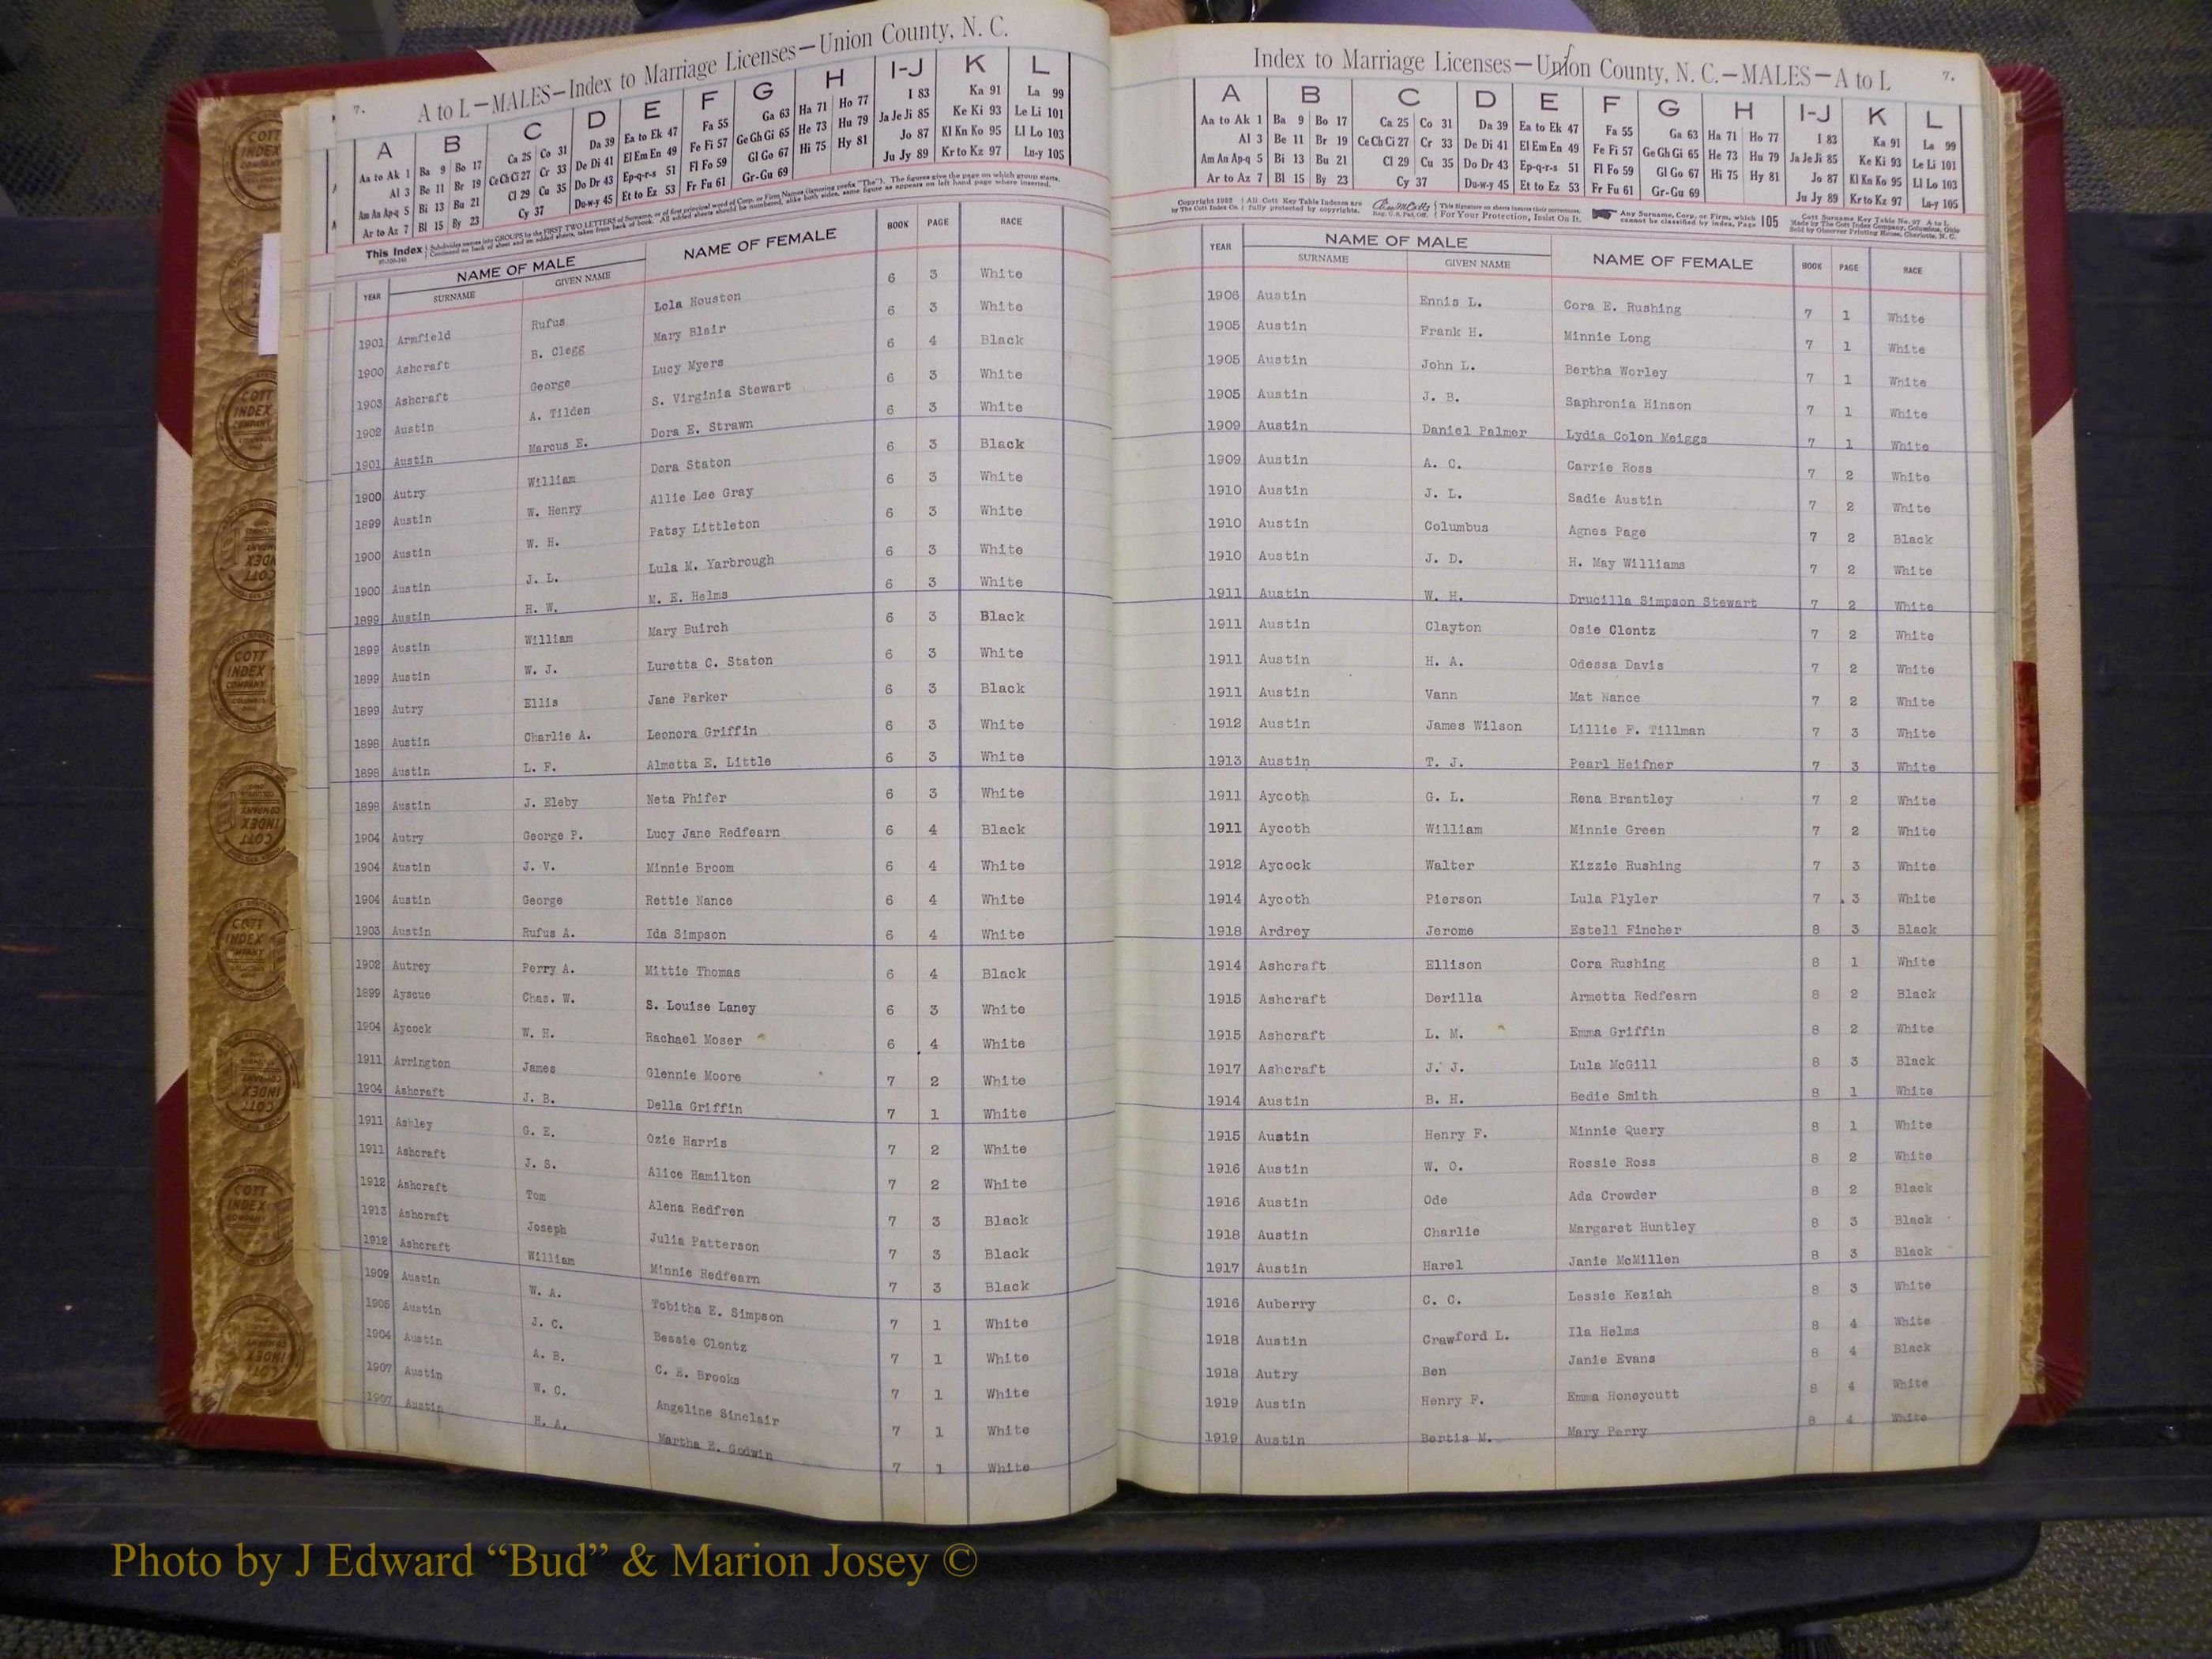 7.
A to L—MALES—Index to Marriage Licenses—Union County, N. C.
A B C D E F G H I-J K L
Aa to Ak 1 Ba 9 Bo 17 Ca 25 Co 31 Da 39 Ea to Ek 47 Fa 55 Ga 63 Ha 71 Ho 77 I 83 Ka 91 La 99
Al 3 Be 11 Br 19 Ce Ch Ci 27 Cr 33 De Di 41 El Em En 49 Fe Fi 57 Ge Gh Gi 65 He 73 Hu 79 Ja Je Ji 85 Ke Ki 93 Le Li 101
Am An Ap-q 5 Bi 13 Bu 21 Cl 29 Cu 35 Do Dr 43 Ep-q-r-s 51 Fl Fo 59 Gl Go 67 Hi 75 Hy 81 Jo 87 Kl Kn Ko 95 Ll Lo 103
Ar to Az 7 Bl 15 By 23 Cy 37 Du-w-y 45 Et to Ez 53 Fr Fu 61 Gr-Gu 69 Ju Jy 89 Kr to Kz 97 Lu-y 105
This Index
YEAR NAME OF MALE NAME OF FEMALE BOOK PAGE RACE
SURNAME GIVEN NAME
1901 Armfield Rufus Lola Houston 6 3 White
1900 Ashcraft B. Clegg Mary Blair 6 3 White
1903 Ashcraft George Lucy Myers 6 4 Black
1902 Austin A. Tilden S. Virginia Stewart 6 3 White
1901 Austin Marcus E. Dora E. Strawn 6 3 White
1900 Autry William Dora Staton 6 3 Black
1899 Austin W. Henry Allie Lee Gray 6 3 White
1900 Austin W. H. Patsy Littleton 6 3 White
1900 Austin J. L. Lula M. Yarbrough 6 3 White
1899 Austin H. W. M. E. Helms 6 3 White
1899 Austin William Mary Buirch 6 3 Black
1899 Austin W. J. Luretta C. Staton 6 3 White
1899 Autry Ellis Jane Parker 6 3 Black
1898 Austin Charlie A. Leonora Griffin 6 3 White
1898 Austin L. F. Almetta E. Little 6 3 White
1898 Austin J. Eleby Neta Phifer 6 3 White
1904 Autry George P. Lucy Jane Redfearn 6 4 Black
1904 Austin J. V. Minnie Broom 6 4 White
1904 Austin George Rettie Nance 6 4 White
1903 Austin Rufus A. Ida Simpson 6 4 White
1902 Autrey Perry A. Mittie Thomas 6 4 Black
1899 Ayscue Chas. W. S. Louise Laney 6 3 White
1904 Aycock W. H. Rachael Moser 6 4 White
1911 Arrington James Glennie Moore 7 2 White
1904 Ashcraft J. B. Della Griffin 7 1 White
1911 Ashley G. E. Ozie Harris 7 2 White
1911 Ashcraft J. S. Alice Hamilton 7 2 White
1912 Ashcraft Tom Alena Redfren 7 3 Black
1913 Ashcraft Joseph Julia Patterson 7 3 Black
1912 Ashcraft William Minnie Redfearn 7 3 Black
1909 Austin W. A. Tobitha E. Simpson 7 1 White
1905 Austin J. C. Bessie Clontz 7 1 White
1904 Austin A. B. C. E. Brooks 7 1 White
1907 Austin W. C. Angeline Sinclair 7 1 White
1907 Austin H. A. Martha E. Godwin 7 1 White
Index to Marriage Licenses—Union County, N. C.—MALES—A to L 7.
A B C D E F G H I-J K L
Aa to Ak 1 Ba 9 Bo 17 Ca 25 Co 31 Da 39 Ea to Ek 47 Fa 55 Ga 63 Ha 71 Ho 77 I 83 Ka 91 La 99
Al 3 Be 11 Br 19 Ce Ch Ci 27 Cr 33 De Di 41 El Em En 49 Fe Fi 57 Ge Gh Gi 65 He 73 Hu 79 Ja Je Ji 85 Ke Ki 93 Le Li 101
Am An Ap-q 5 Bi 13 Bu 21 Cl 29 Cu 35 Do Dr 43 Ep-q-r-s 51 Fl Fo 59 Gl Go 67 Hi 75 Hy 81 Jo 87 Kl Kn Ko 95 Ll Lo 103
Ar to Az 7 Bl 15 By 23 Cy 37 Du-w-y 45 Et to Ez 53 Fr Fu 61 Gr-Gu 69 Ju Jy 89 Kr to Kz 97 Lu-y 105
by The Cott Index Co. All Cott Key Table Indexes are fully protected by copyrights. For Your Protection, Insist On It. Any Surname, Corp. or Firm, which cannot be classified by index, Page 105
YEAR NAME OF MALE NAME OF FEMALE BOOK PAGE RACE
SURNAME GIVEN NAME
1906 Austin Ennis L. Cora E. Rushing 7 1 White
1905 Austin Frank H. Minnie Long 7 1 White
1905 Austin John L. Bertha Worley 7 1 White
1905 Austin J. B. Saphronia Hinson 7 1 White
1909 Austin Daniel Palmer Lydia Colon Meiggs 7 1 White
1909 Austin A. C. Carrie Ross 7 2 White
1910 Austin J. L. Sadie Austin 7 2 White
1910 Austin Columbus Agnes Page 7 2 Black
1910 Austin J. D. H. May Williams 7 2 White
1911 Austin W. H. Drucilla Simpson Stewart 7 2 White
1911 Austin Clayton Osie Clontz 7 2 White
1911 Austin H. A. Odessa Davis 7 2 White
1911 Austin Vann Mat Nance 7 2 White
1912 Austin James Wilson Lillie F. Tillman 7 3 White
1913 Austin T. J. Pearl Heifner 7 3 White
1911 Aycoth G. L. Rena Brantley 7 2 White
1911 Aycoth William Minnie Green 7 2 White
1912 Aycock Walter Kizzie Rushing 7 3 White
1914 Aycoth Pierson Lula Plyler 7 3 White
1918 Ardrey Jerome Estell Fincher 8 3 Black
1914 Ashcraft Ellison Cora Rushing 8 1 White
1915 Ashcraft Derilla Armetta Redfearn 8 2 Black
1915 Ashcraft L. M. Emma Griffin 8 2 White
1917 Ashcraft J. J. Lula McGill 8 3 Black
1914 Austin B. H. Bedie Smith 8 1 White
1915 Austin Henry F. Minnie Query 8 1 White
1916 Austin W. O. Rossie Ross 8 2 White
1916 Austin Ode Ada Crowder 8 2 Black
1918 Austin Charlie Margaret Huntley 8 3 Black
1917 Austin Harel Janie McMillen 8 3 Black
1916 Auberry C. C. Lessie Keziah 8 3 White
1918 Austin Crawford L. Ila Helms 8 4 White
1918 Autry Ben Janie Evans 8 4 Black
1919 Austin Henry F. Emma Honeycutt 8 4 White
1919 Austin Bertis M. Mary Perry 8 4 White
Photo by J Edward “Bud” & Marion Josey ©